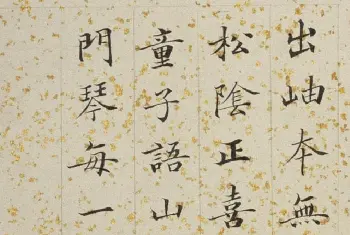 出岫本無
松陰正喜
童子語山
門琴每一